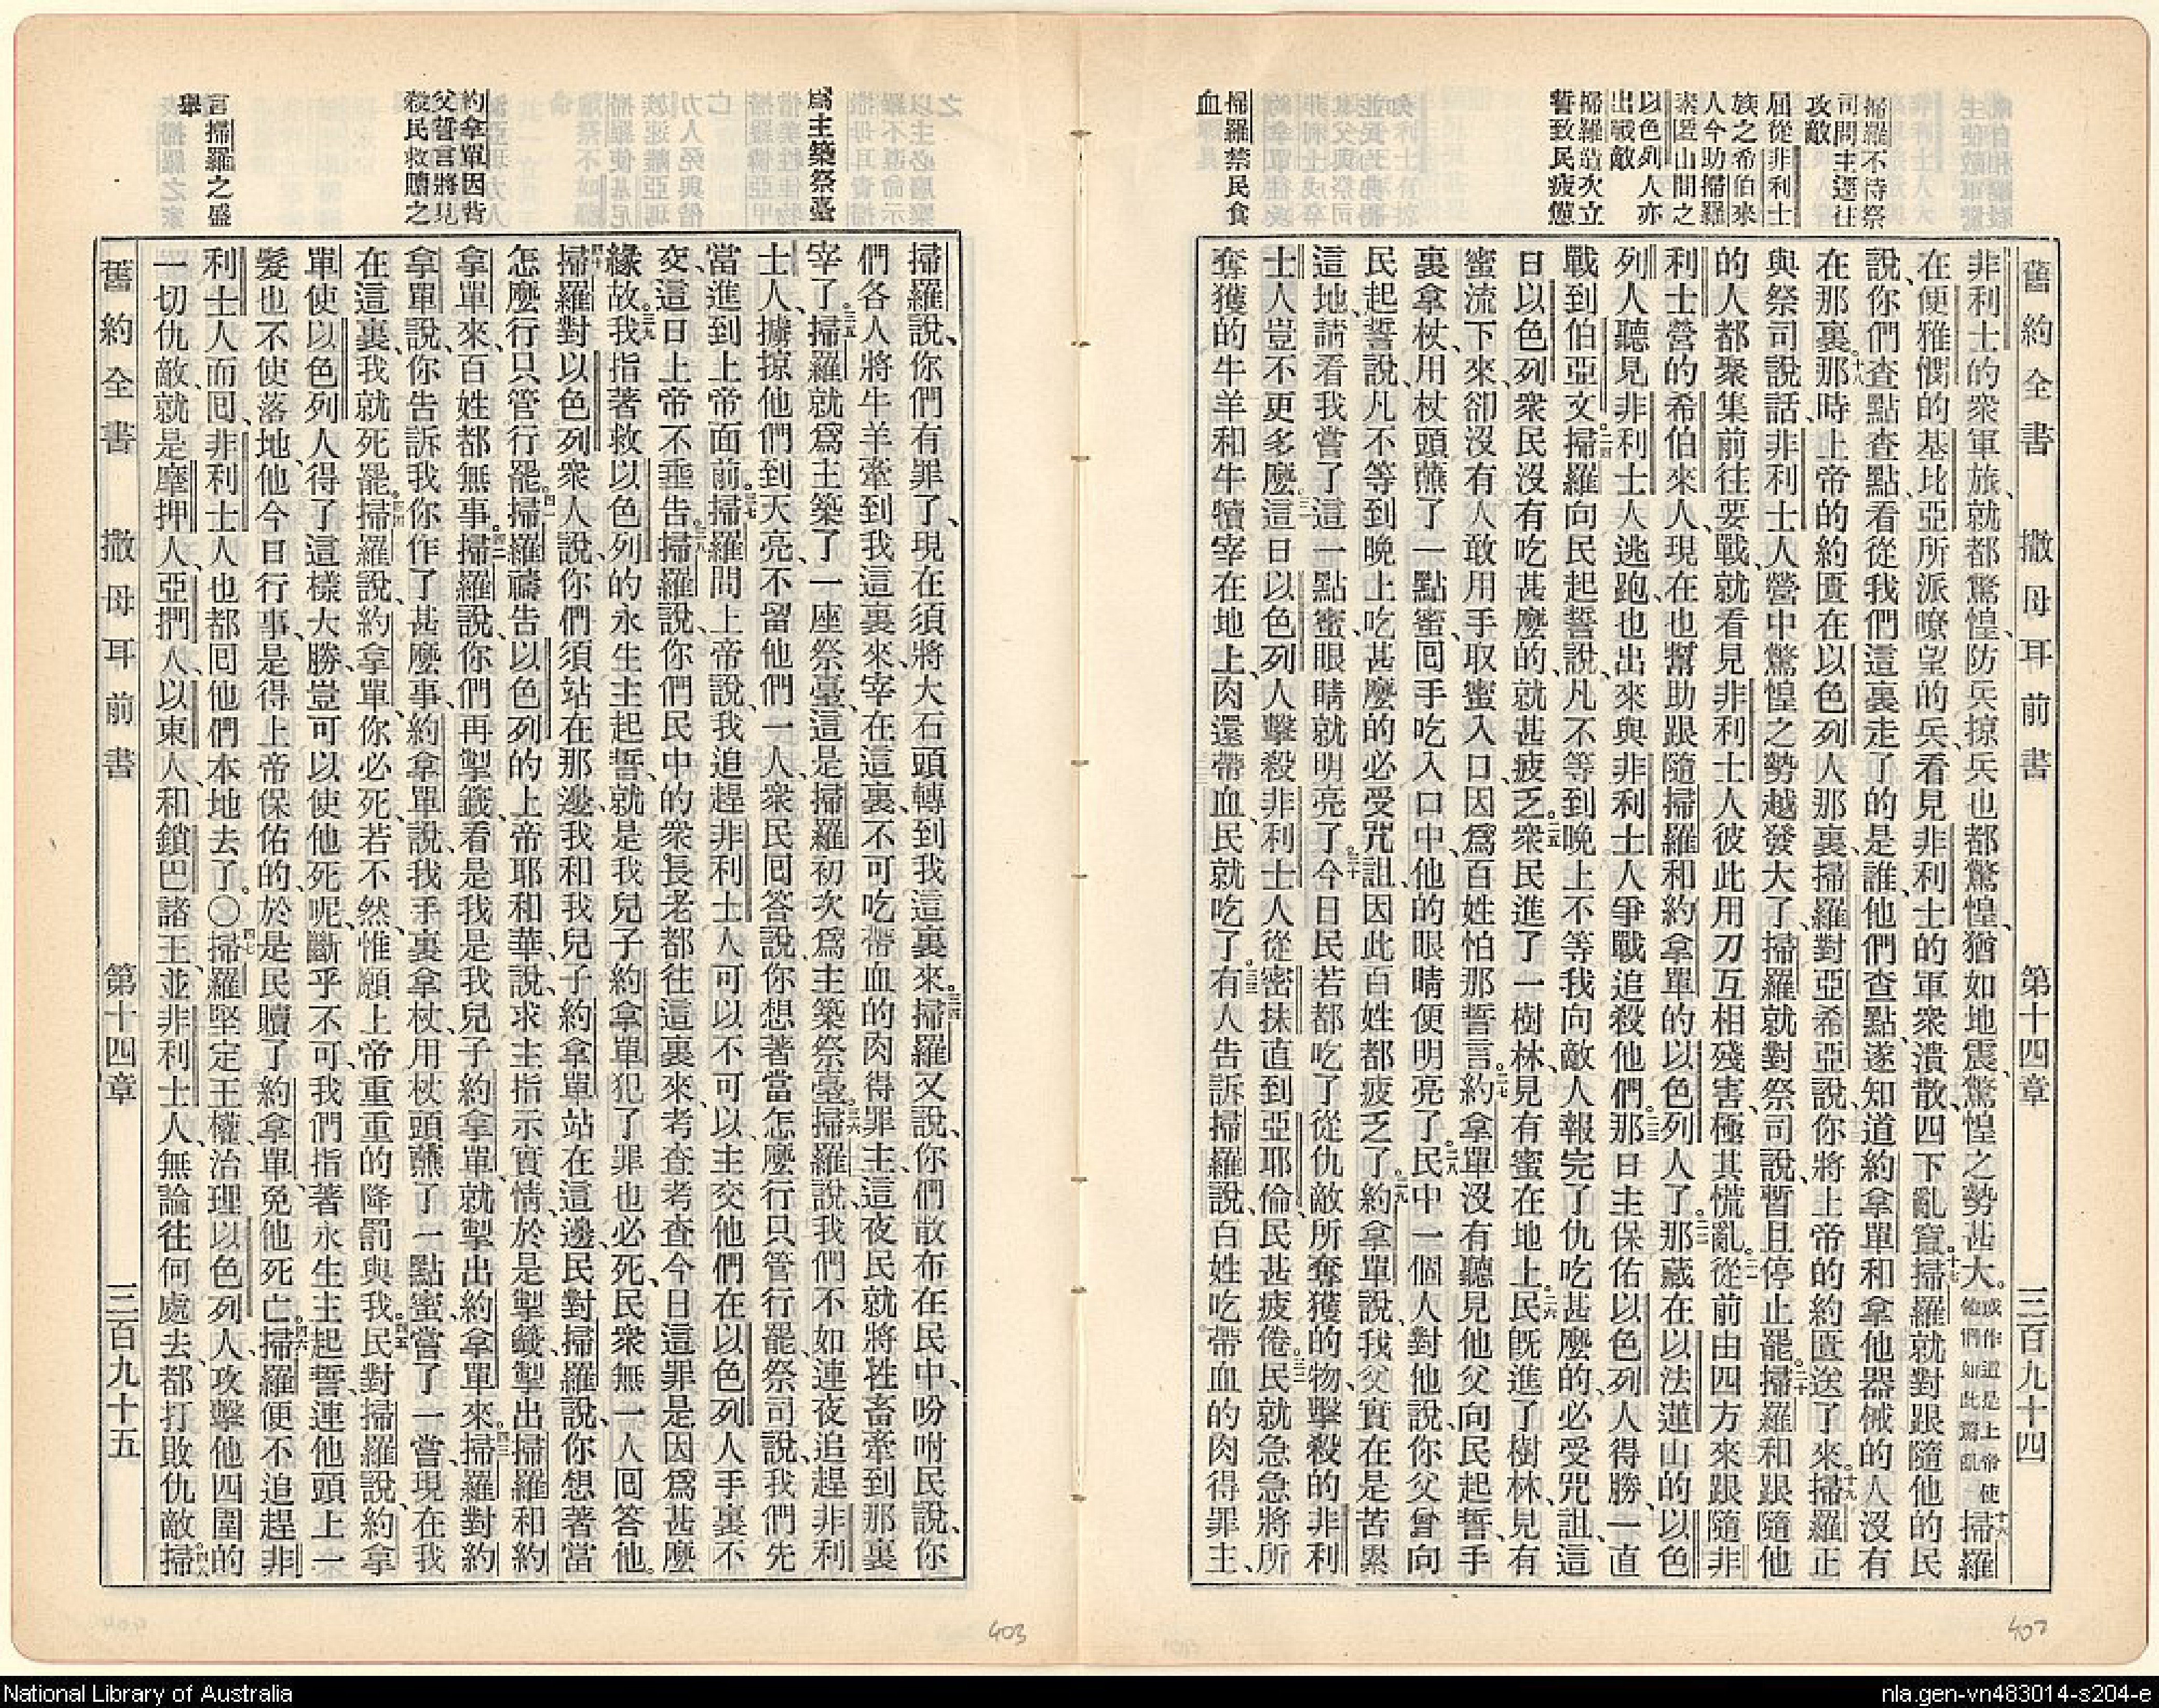 舊約全書 撒母耳前書 第十四章 三百九十四
掃羅不待祭
司問主遽往
攻敵
屈從非利士
族之希伯來
人今助掃羅
素匿山間之
以色列人亦
出戰敵
掃羅造次立
誓致民疲憊
掃羅禁民食
血
非利士的衆軍旅、就都驚惶、防兵掠兵也都驚惶、猶如地震、驚惶之勢甚大。或作這是上帝使他們如此擾亂十六掃羅
在便雅憫的基比亞所派瞭望的兵、看見非利士的軍衆潰散、四下亂竄。十七掃羅就對跟隨他的民
說、你們查點查點、看從我們這裏走了的是誰、他們查點、遂知道約拿單和拿他器械的人沒有
在那裏。十八那時上帝的約匱在以色列人那裏、掃羅對亞希亞說、你將上帝的約匱送了來。十九掃羅正
與祭司說話、非利士人營中驚惶之勢越發大了、掃羅就對祭司說、暫且停止罷。二十掃羅和跟隨他
的人都聚集前往要戰、就看見非利士人彼此用刀互相殘害、極其慌亂。二一從前由四方來跟隨非
利士營的希伯來人、現在也幫助跟隨掃羅和約拿單的以色列人了。二二那藏在以法蓮山的以色
列人、聽見非利士人逃跑、也出來與非利士人爭戰、追殺他們。二三那日主保佑以色列人得勝、一直
戰到伯亞文。二四掃羅向民起誓說、凡不等到晚上不等我向敵人報完了仇吃甚麼的、必受咒詛、這
日以色列衆民沒有吃甚麼的、就甚疲乏。二五衆民進了一樹林、見有蜜在地上。二六民旣進了樹林、見有
蜜流下來、卻沒有人敢用手取蜜入口、因爲百姓怕那誓言。二七約拿單沒有聽見他父向民起誓、手
裏拿杖、用杖頭蘸了一點蜜、囘手吃入口中、他的眼睛便明亮了。二八民中一個人對他說、你父曾向
民起誓說、凡不等到晚上吃甚麼的必受咒詛、因此百姓都疲乏了。二九約拿單說、我父實在是苦累
這地、請看我嘗了這一點蜜、眼睛就明亮了。三十今日民若都吃了從仇敵所奪獲的物、擊殺的非利
士人豈不更多麼。三一這日以色列人擊殺非利士人、從密抹直到亞耶倫、民甚疲倦。三二民就急急將所
奪獲的牛羊和牛犢、宰在地上、肉還帶血、民就吃了。三三有人告訴掃羅說、百姓吃帶血的肉得罪主、
爲主築祭臺
約拿單因背
父誓言將見
殺民救贖之
言掃羅之盛
舉
掃羅說、你們有罪了、現在須將大石頭轉到我這裏來。三四掃羅又說、你們散布在民中、吩咐民說、你
們各人將牛羊牽到我這裏來、宰在這裏、不可吃帶血的肉得罪主、這夜民就將牲畜牽到那裏
宰了。三五掃羅就爲主築了一座祭臺、這是掃羅初次爲主築祭臺。三六掃羅說、我們不如連夜追趕非利
士人、擄掠他們到天亮、不留他們一人、衆民囘答說、你想著當怎麼行、只管行罷、祭司說、我們先
當進到上帝面前。三七掃羅問上帝說、我追趕非利士人可以不可以、主交他們在以色列人手裏不
交、這日上帝不垂告。三八掃羅說、你們民中的衆長老都往這裏來、考查考查、今日這罪是因爲甚麼
緣故。三九我指著救以色列的永生主起誓、就是我兒子約拿單犯了罪也必死、民衆無一人囘答他。
四十掃羅對以色列衆人說、你們須站在那邊、我和我兒子約拿單站在這邊、民對掃羅說、你想著當
怎麼行、只管行罷。四一掃羅禱告以色列的上帝耶和華說、求主指示實情、於是掣籤、掣出掃羅和約
拿單來、百姓都無事。四二掃羅說、你們再掣籤、看是我是我兒子約拿單、就掣出約拿單來。四三掃羅對約
拿單說、你告訴我、你作了甚麼事、約拿單說、我手裏拿杖、用杖頭蘸了一點蜜、嘗了一嘗、現在我
在這裏、我就死罷。四四掃羅說、約拿單、你必死、若不然、惟願上帝重重的降罰與我。四五民對掃羅說、約拿
單使以色列人得了這樣大勝、豈可以使他死呢、斷乎不可、我們指著永生主起誓、連他頭上一
髮也不使落地、他今日行事、是得上帝保佑的、於是民贖了約拿單、免他死亡。四六掃羅便不追趕非
利士人而囘、非利士人也都囘他們本地去了。〇四七掃羅堅定王權、治理以色列人、攻擊他四圍的
一切仇敵、就是摩押人、亞捫人、以東人、和鎖巴諸王、並非利士人、無論往何處去、都打敗仇敵。四八掃
舊約全書 撒母耳前書 第十四章 三百九十五
403
407
National Library of Australia
nla.gen-vn483014-s204-e